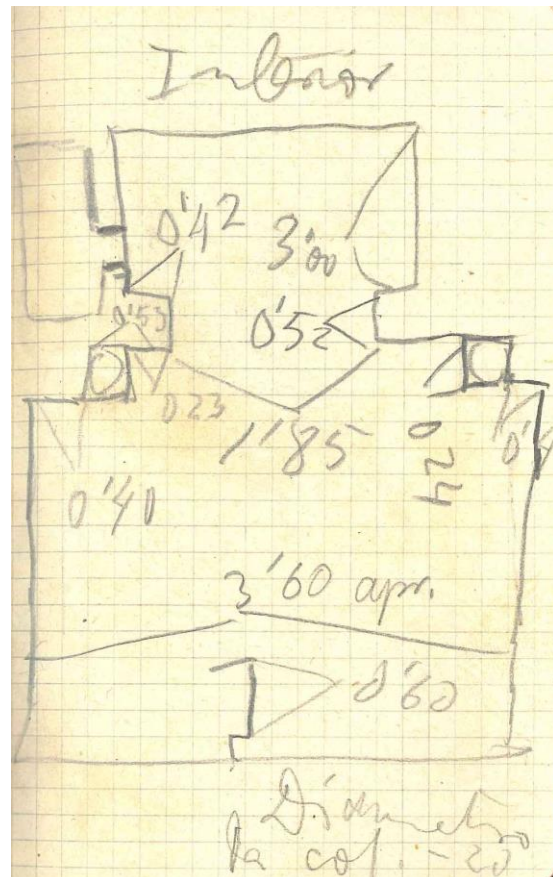 Interior
0'42
3'00
0'53
0'52
0'23
1'85
0'24
0'40
3'60 apr.
0'60
Diámetro
la col. - 20